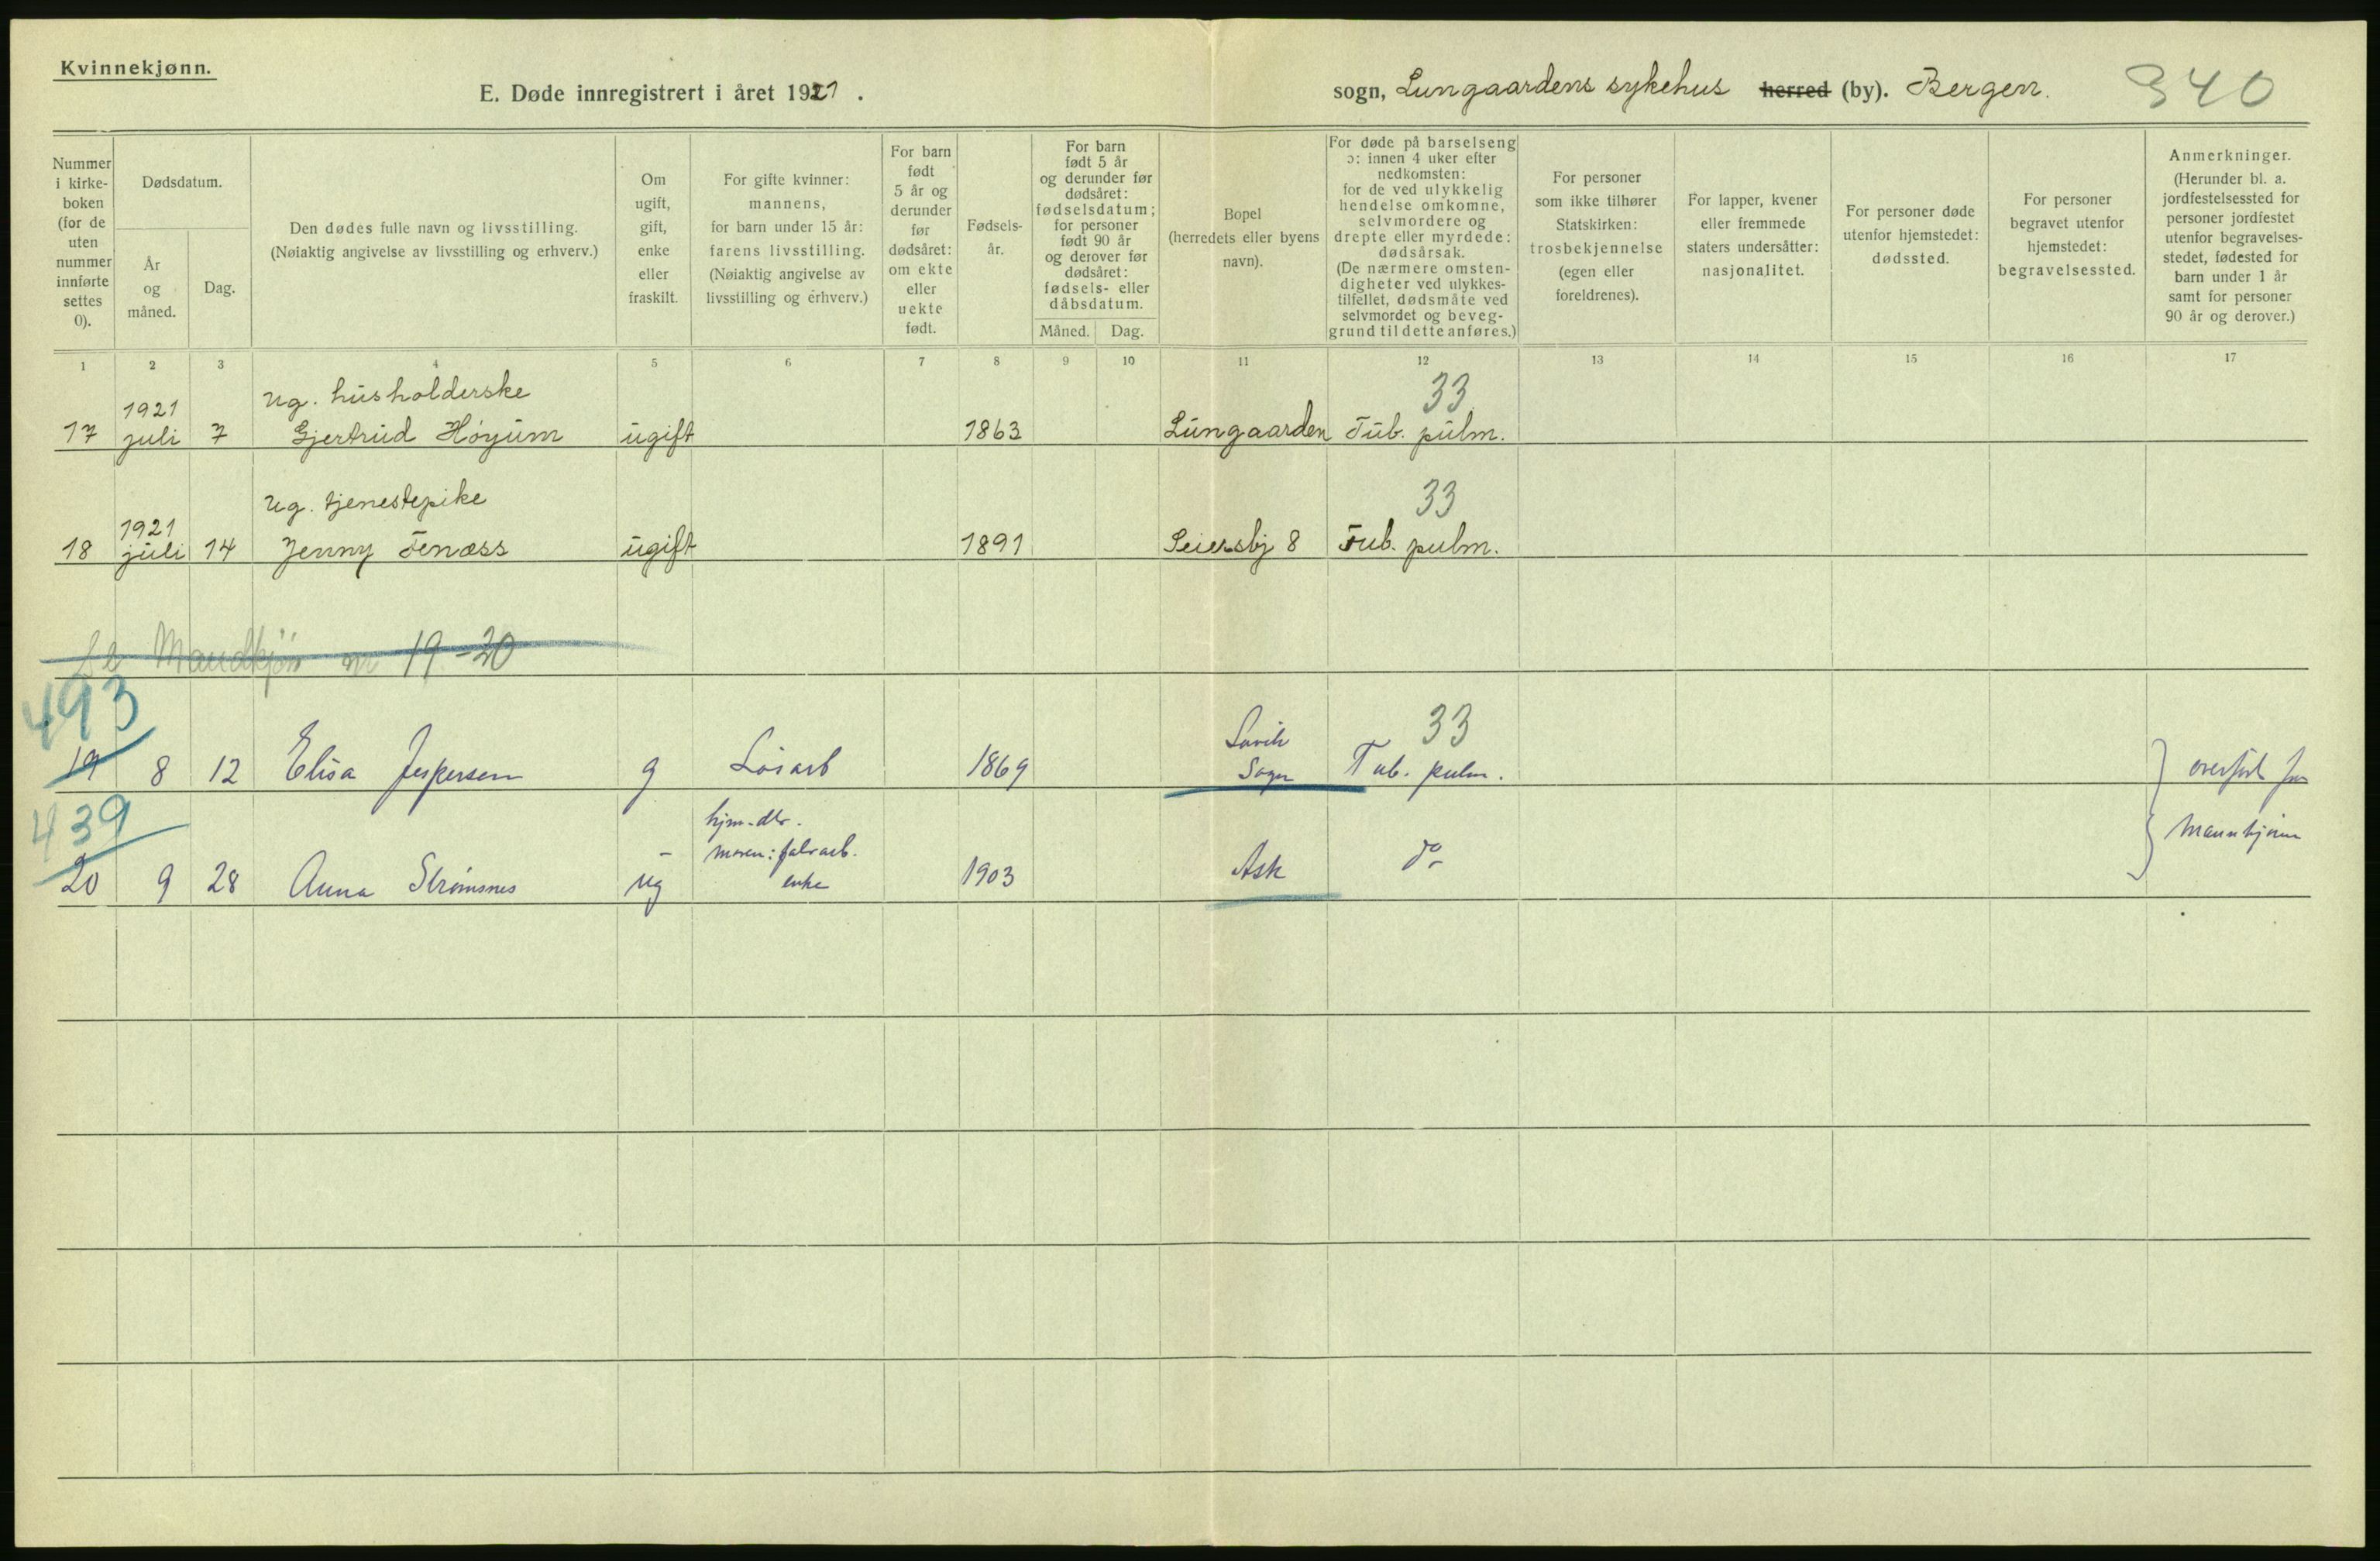 Kvinnekjønn.
E. Døde innregistrert i året 1921.
sogn, Lungaardens sykehus herred (by). Bergen. 340
Nummer i kirke-boken (for de uten nummer innførte settes 0).
Dødsdatum.
År og måned.
Dag.
Den dødes fulle navn og livsstilling.
(Nøiaktig angivelse av livsstilling og erhverv.)
Om ugift, gift, enke eller fraskilt.
For gifte kvinner: mannens, for barn under 15 år: farens livsstilling. (Nøiaktig angivelse av livsstilling og erhverv.)
For barn født 5 år og derunder før dødsåret: om ekte eller uekte født.
Fødsels-år.
For barn født 5 år og derunder før dødsåret: fødselsdatum; for personer født 90 år og derover før dødsåret: fødsels- eller dåbsdatum.
Måned. Dag.
Bopel (herredets eller byens navn).
For døde på barselseng ɔ: innen 4 uker efter nedkomsten: for de ved ulykkelig hendelse omkomne, selvmordere og drepte eller myrdede: dødsårsak. (De nærmere omsten-digheter ved ulykkes-tilfellet, dødsmåte ved selvmordet og beveg-grund til dette anføres.)
For personer som ikke tilhører Statskirken: trosbekjennelse (egen eller foreldrenes).
For lapper, kvener eller fremmede staters undersåtter: nasjonalitet.
For personer døde utenfor hjemstedet: dødssted.
For personer begravet utenfor hjemstedet: begravelsessted.
Anmerkninger. (Herunder bl. a. jordfestelsessted for personer jordfestet utenfor begravelses-stedet, fødested for barn under 1 år samt for personer 90 år og derover.)
1 2 3 4 5 6 7 8 9 10 11 12 13 14 15 16 17
1921 ug. husholderske 33
17 juli 7 Gjertrud Høyum ugift 1863 Lungaarden Tub. pulm.
1921 ug. tjenestepike 33
18 juli 14 Jenny Tenæss ugift 1891 Seiersbj 8 Tub. pulm.
Mandkjøn nr 19-20
493
33
Lavik
19 8 12 Elisa Jespersen g Løsarb 1869 Sogn Tub. pulm. overført fra
439
hjm. dtr.
- moren: fabrarb. Mannkjønn
20 9 28 Anna Strømsnes ug enke 1903 Ask do